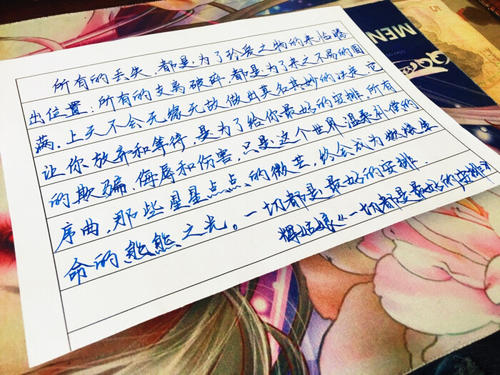 所有的丢失,都是为了珍爱之物的来临腾
出位置;所有的支离破碎,都是为了来之不易的圆
满,上天不会无缘无故做出莫名其妙的决定,它
让你放弃和等待,是为了给你最好的安排.所有
的欺骗,侮辱和伤害,只是这个世界温柔补偿的
序曲,那些星星点点的微芒,终会成为燃烧生
命的熊熊之光。一切都是最好的安排.
辉姑娘《一切都是最好的安排》
MEN